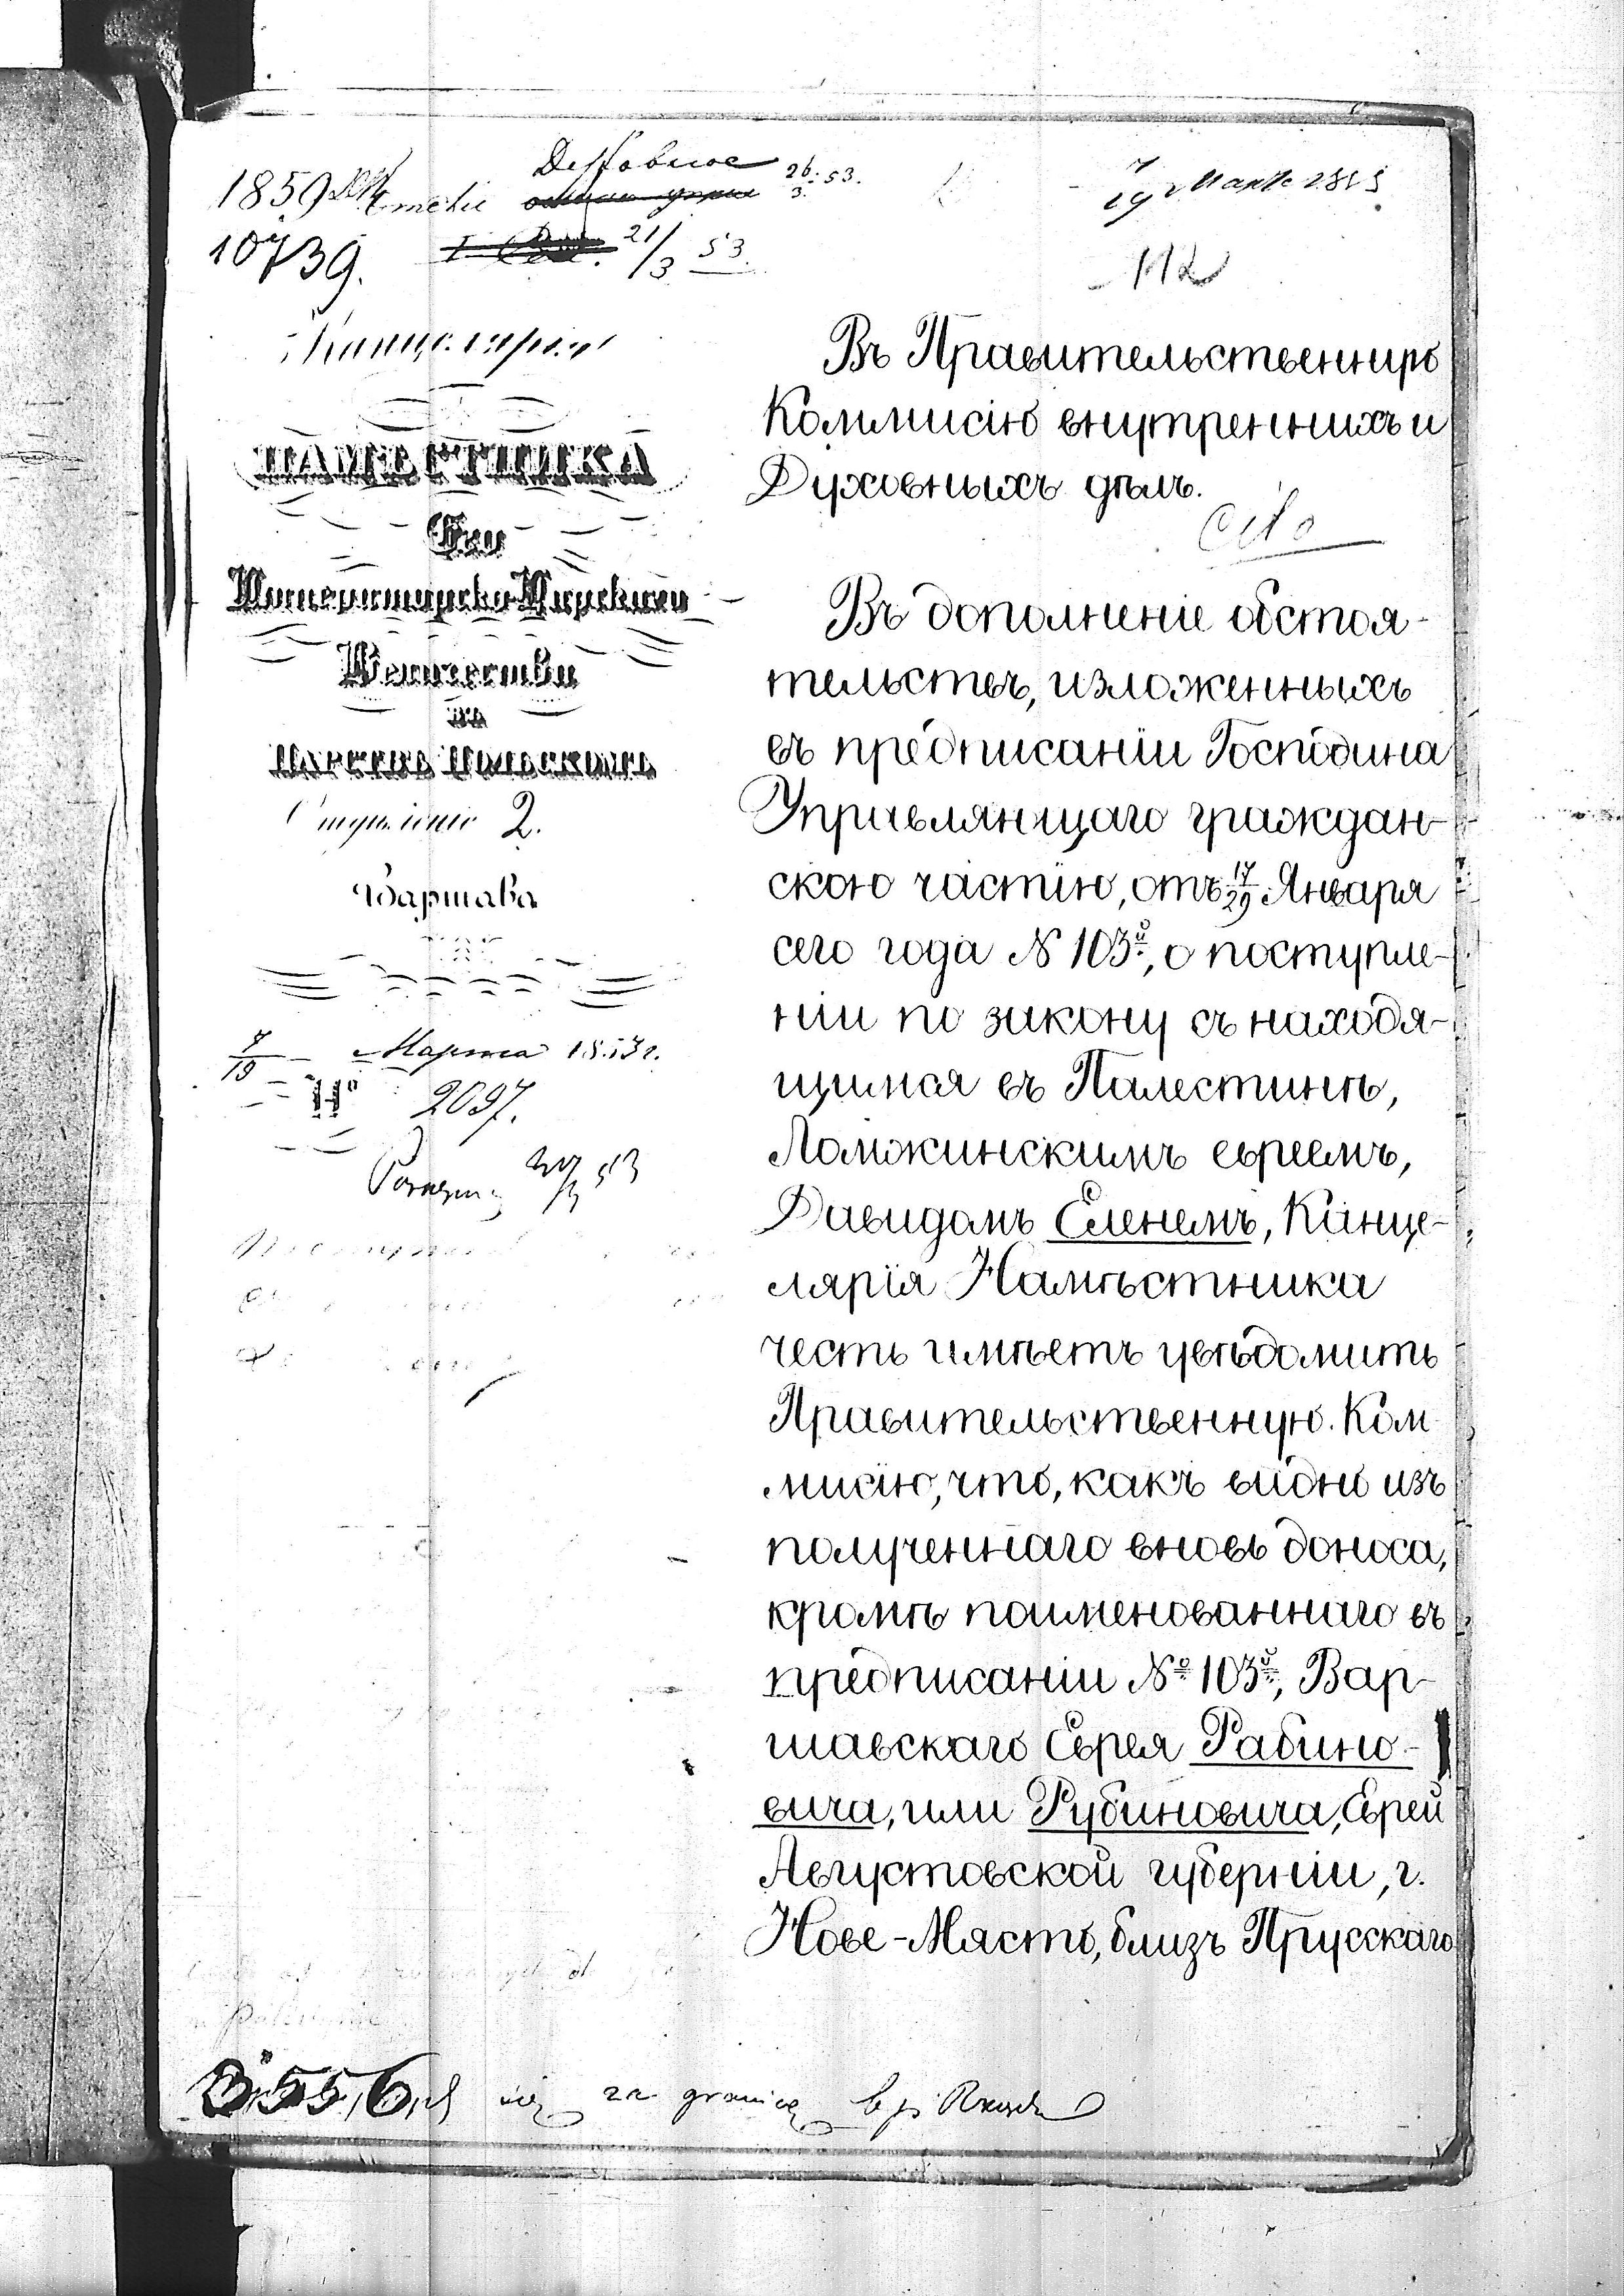 1859
10739.
26/3 53.
21/3 53.
7/19 Марта 1853
112
Канцелярія
НАМѢСТНИКА
Его
Императорско-Царскаго
Величества
въ
Царствѣ Польскомъ
Отдѣленіе 2.
Варшава
7/19 Марта 1853 г.
№ 2097.
Въ Правительственную
Коммисію внутреннихъ и
Духовныхъ дѣлъ.
Cito
Въ дополненіе обстоя-
тельствъ, изложенныхъ
въ предписаніи Господина
Управляющаго граждан-
скою частію, отъ 17/29 Января
сего года № 103, о поступле-
ніи по закону съ находя-
щимся въ Палестинѣ,
Ломжинскимъ евреемъ,
Давидомъ Еленемъ, Канце-
лярія Намѣстника
честь имѣетъ увѣдомить
Правительственную Ком-
мисію, что, какъ видно изъ
полученнаго вновь доноса,
кромѣ поименованнаго въ
предписаніи № 103, Вар-
шавскаго Еврея Рабино-
вича, или Рубиновича, Еврей
Августовской губерніи, г.
Нове-Място, близъ Прусскаго
3556 się za granicę